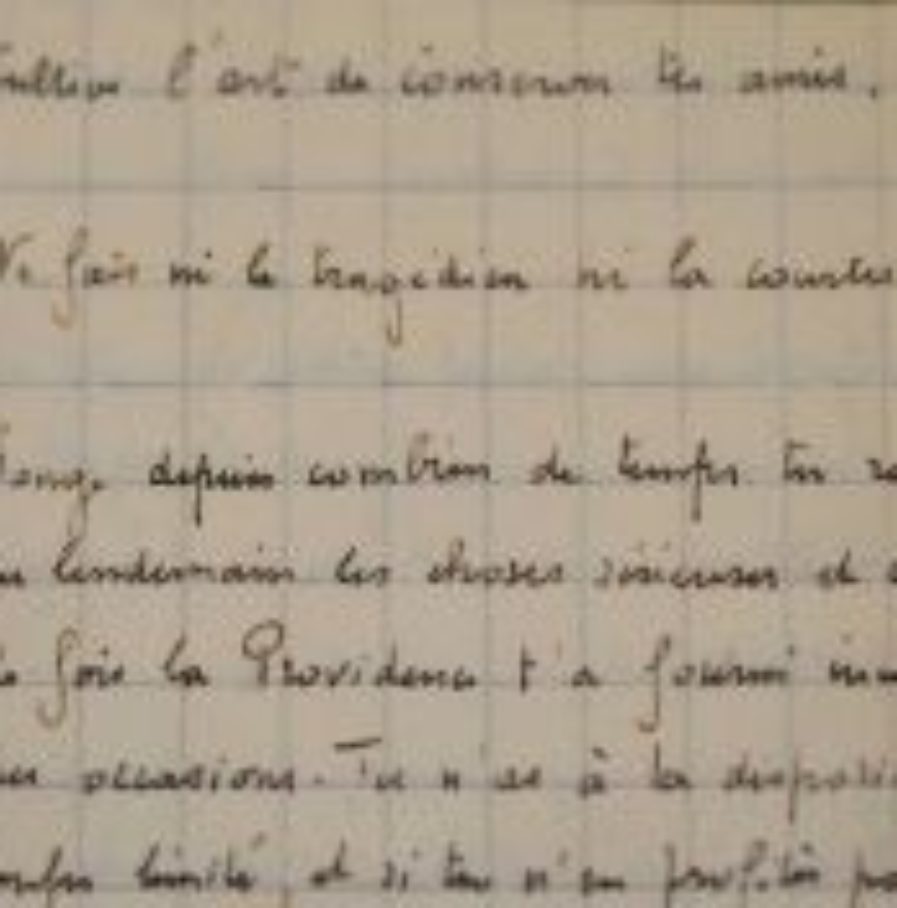 cultive l'art de conserver tes amis.
Ne fais ni le tragédien ni la courtis
Songe depuis combien de temps tu re
au lendemain les choses sérieuses et
de fois la Providence t'a fourni inu
occasions. Tu n'as à ta disposi
temps limité, et si tu n'en profites pa